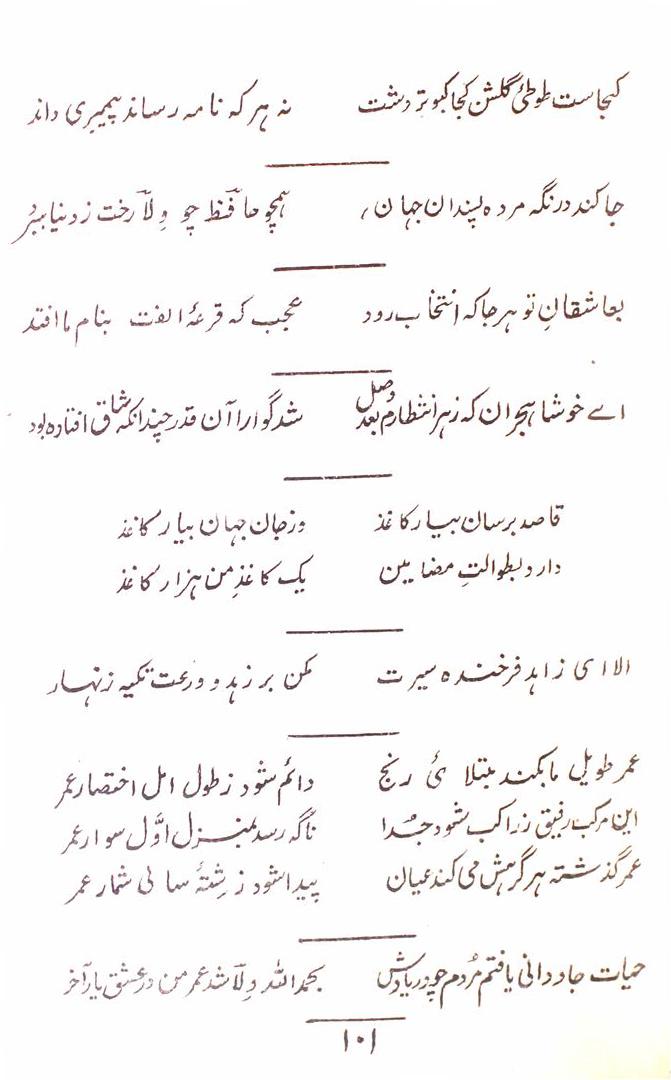 کجاست طوطئ گلشن کجا کبوتر دشت نہ ہر کہ نامہ رساند پیمبری داند
جا کند در نگہ مردہ پسندان جہان، ہمچو حافظ چو وِلاؔ رخت ز دنیا ببرد
بعاشقانِ تو ہر جا کہ انتخاب رود عجب کہ قرعۂ الفت بنام ما افتد
اے خوشا ہجران کہ زہر انتظارم بعد وصل شد گوارا آن قدر چندانکہ شاق افتادہ بود
قاصد برسان بیار کاغذ وز جان جہان بیار کاغذ
دارد بطوالتِ مضامین یک کاغذِ من ہزار کاغذ
الا ای زاہد فرخندہ سیرت مکن بر زہد و ورعت تکیہ زنہار
عمر طویل ما بکند مبتلائ رنج دائم شود ز طول امل اختصار عمر
این مرکب رفیق ز راکب شود جُدا ناگہ رسد بمنزل اوّل سوار عمر
عمر گذشتہ ہر گرہش می کند عیان پیدا شود ز رشتۂ سالی شمار عمر
حیات جاودانی یافتم مُردم چو در یادش بحمد اللہ وِلاؔ شد عمر من در عشق یار آخر
۱۰۱